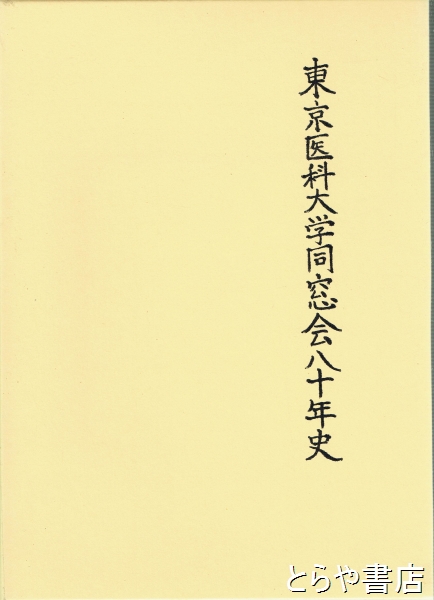 東京医科大学同窓会八十年史
とらや書店